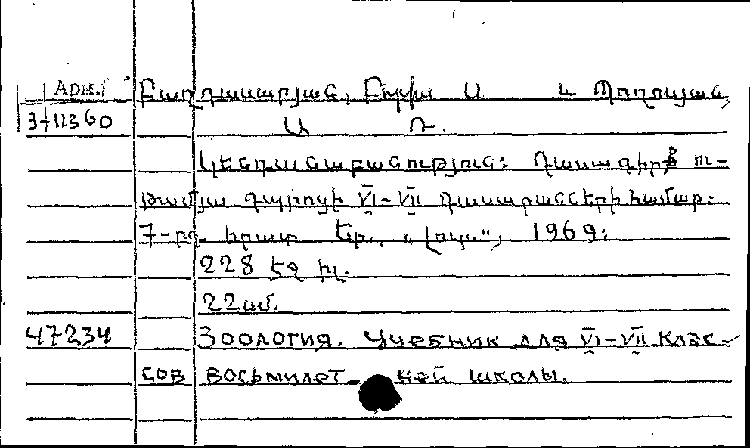 Арм. Բաղդասարյան, Մ և Պողոսյան,
3-11360 Ա Ռ.
Կենդանաբանություն: Դասագիրք ու-
թամյա դպրոցի VI-VII դասարանների համար:
7-րդ. հրատ Եր., «Լույս», 1969:
228 էջ իլ.
22սմ.
47234 Зоология. Учебник для VI-VII клас-
сов восьмилет кой школы.